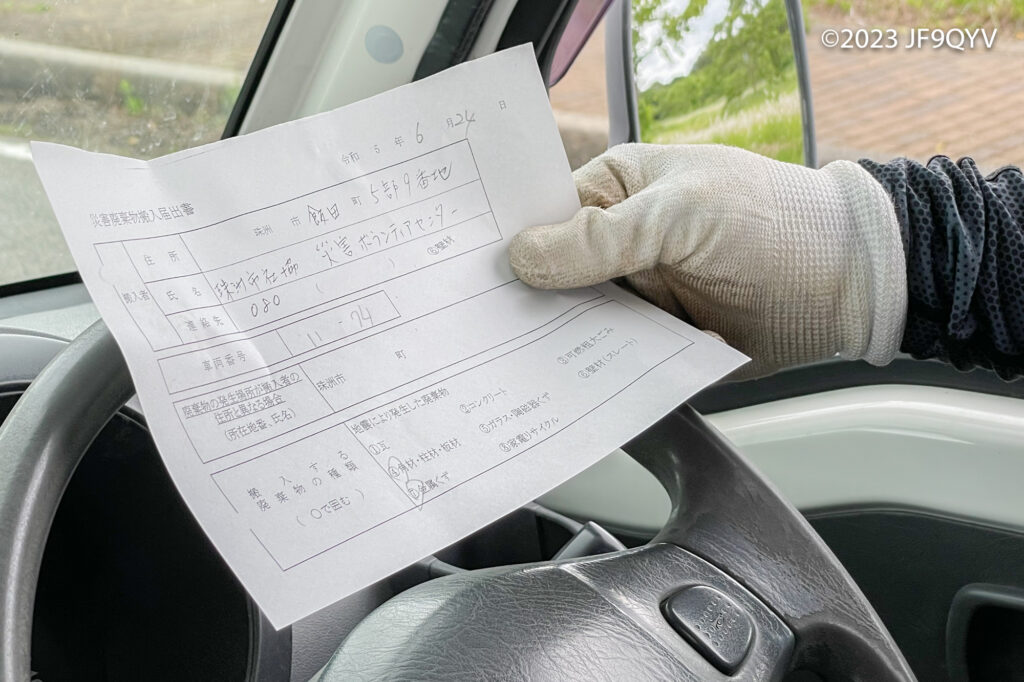 ©2023 JF9QYV
令和 5 年 6 月 24 日
災害廃棄物搬入届出書
搬入者
住所 珠洲 市 飯田 町 5部9番地
氏名 珠洲市社協 災害ボランティアセンター
連絡先 080 ( )
⑥壁材
車両番号 11-74
廃棄物の発生場所が搬入者の
住所と異なる場合
(所在地番、氏名)
珠洲市 町
搬入する
廃棄物の種類
(○で囲む)
地震により発生した廃棄物
①瓦 ②コンクリート ③可燃粗大ごみ
④角材・柱材・板材 ⑤ガラス・陶磁器くず ⑥壁材(スレート)
⑦金属くず ⑧家電リサイクル